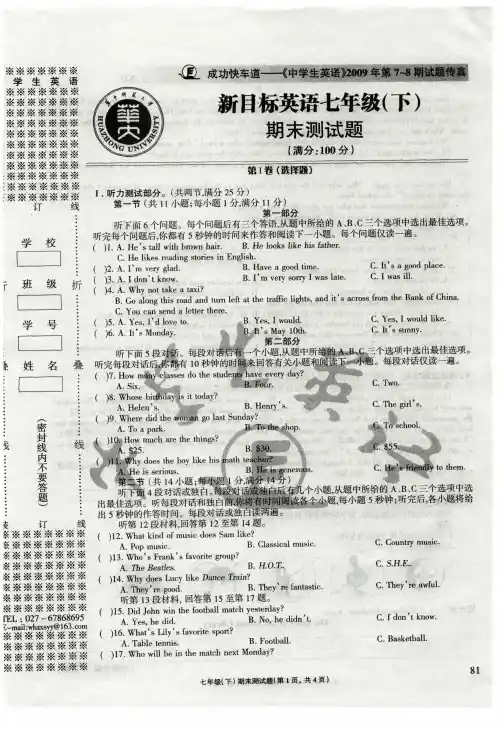 成功快车道——《中学生英语》2009年第7-8期试题传真
新目标英语七年级(下)
期末测试题
(满分:100分)
第Ⅰ卷(选择题)
1.听力测试部分。(共两节,满分25分)
第一节(共11小题;每小题1分,满分11分)
第一部分
听下面6个问题。每个问题后有三个答语,从题中所给的A、B、C三个选项中选出最佳选项。
听完每个问题后,你都有5秒钟的时间来作答和阅读下一小题。每个问题仅读一遍。
( )1. A. He's tall with brown hair. B. He looks like his father.
C. He likes reading stories in English.
( )2. A. I'm very glad. B. Have a good time. C. It's a good place.
( )3. A. I don't know. B. I'm very sorry I was late. C. I was ill.
( )4. A. Why not take a taxi?
B. Go along this road and turn left at the traffic lights, and it's across from the Bank of China.
C. You can send a letter there.
( )5. A. Yes, I'd love to. B. Yes, I would. C. Yes, I would like.
( )6. A. It's Monday. B. It's May 10th. C. It's sunny.
第二部分
听下面5段对话。每段对话后有一个小题,从题中所给的A、B、C三个选项中选出最佳选项。
听完每段对话后,你都有10秒钟的时间来回答有关小题和阅读下一小题。每段对话仅读一遍。
( )7. How many classes do the students have every day?
A. Six. B. Four. C. Two.
( )8. Whose birthday is it today?
A. Helen's. B. Henry's. C. The girl's.
( )9. Where did the woman go last Sunday?
A. To a park. B. To the shop. C. To school.
( )10. How much are the things?
A. $25. B. $30. C. $55.
( )11. Why does the boy like his math teacher?
A. He is serious. B. He is generous. C. He's friendly to them.
第二节(共14小题;每小题1分,满分14分)
听下面4段对话或独白,每段对话或独白后有几个小题,从题中所给的A、B、C三个选项中选
出最佳选项。听每段对话和独白前,你将有时间阅读各个小题,每小题5秒钟;听完后,各小题将给
出5秒钟的作答时间。每段对话或独白读两遍。
听第12段材料,回答第12至第14题。
( )12. What kind of music does Sam like?
A. Pop music. B. Classical music. C. Country music.
( )13. Who's Frank's favorite group?
A. The Beatles. B. H.O.T. C. S.H.E.
( )14. Why does Lucy like Dance Train?
A. They're good. B. They're fantastic. C. They're awful.
听第13段材料,回答第15至第17题。
( )15. Did John win the football match yesterday?
A. Yes, he did. B. No, he didn't. C. I don't know.
( )16. What's Lily's favorite sport?
A. Table tennis. B. Football. C. Basketball.
( )17. Who will be in the match next Monday?
七年级(下)期末测试题(第1页,共4页)
81
学生英语
订 线
学校
班级
折
学号
叠 姓名 叠
(密封线内不要答题)
线 线
订 线
TEL:027-67868695
E-mail:whzxsyy@163.com
HUAZHONG UNIVERSITY
中学生英语